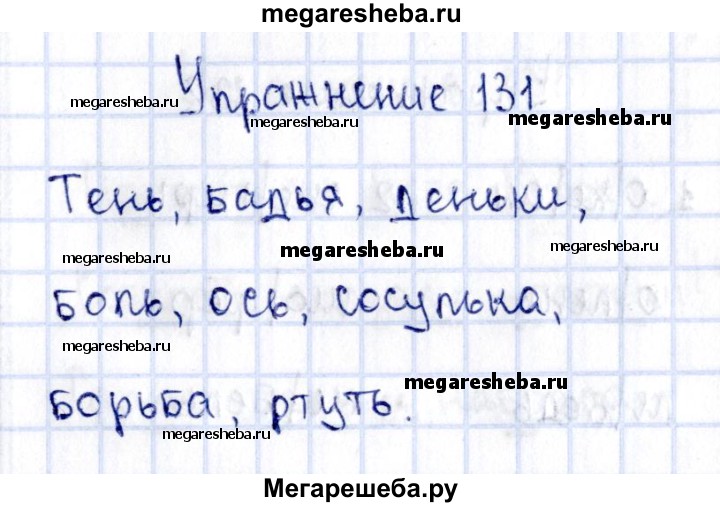 megaresheba.ru
Упражнение 131
megaresheba.ru
megaresheba.ru
megaresheba.ru
Тень, бадья, деньки,
megaresheba.ru
megaresheba.ru
megaresheba.ru
боль, ось, сосулька,
megaresheba.ru
megaresheba.ru
борьба, ртуть.
megaresheba.ru
Мегарешеба.ру